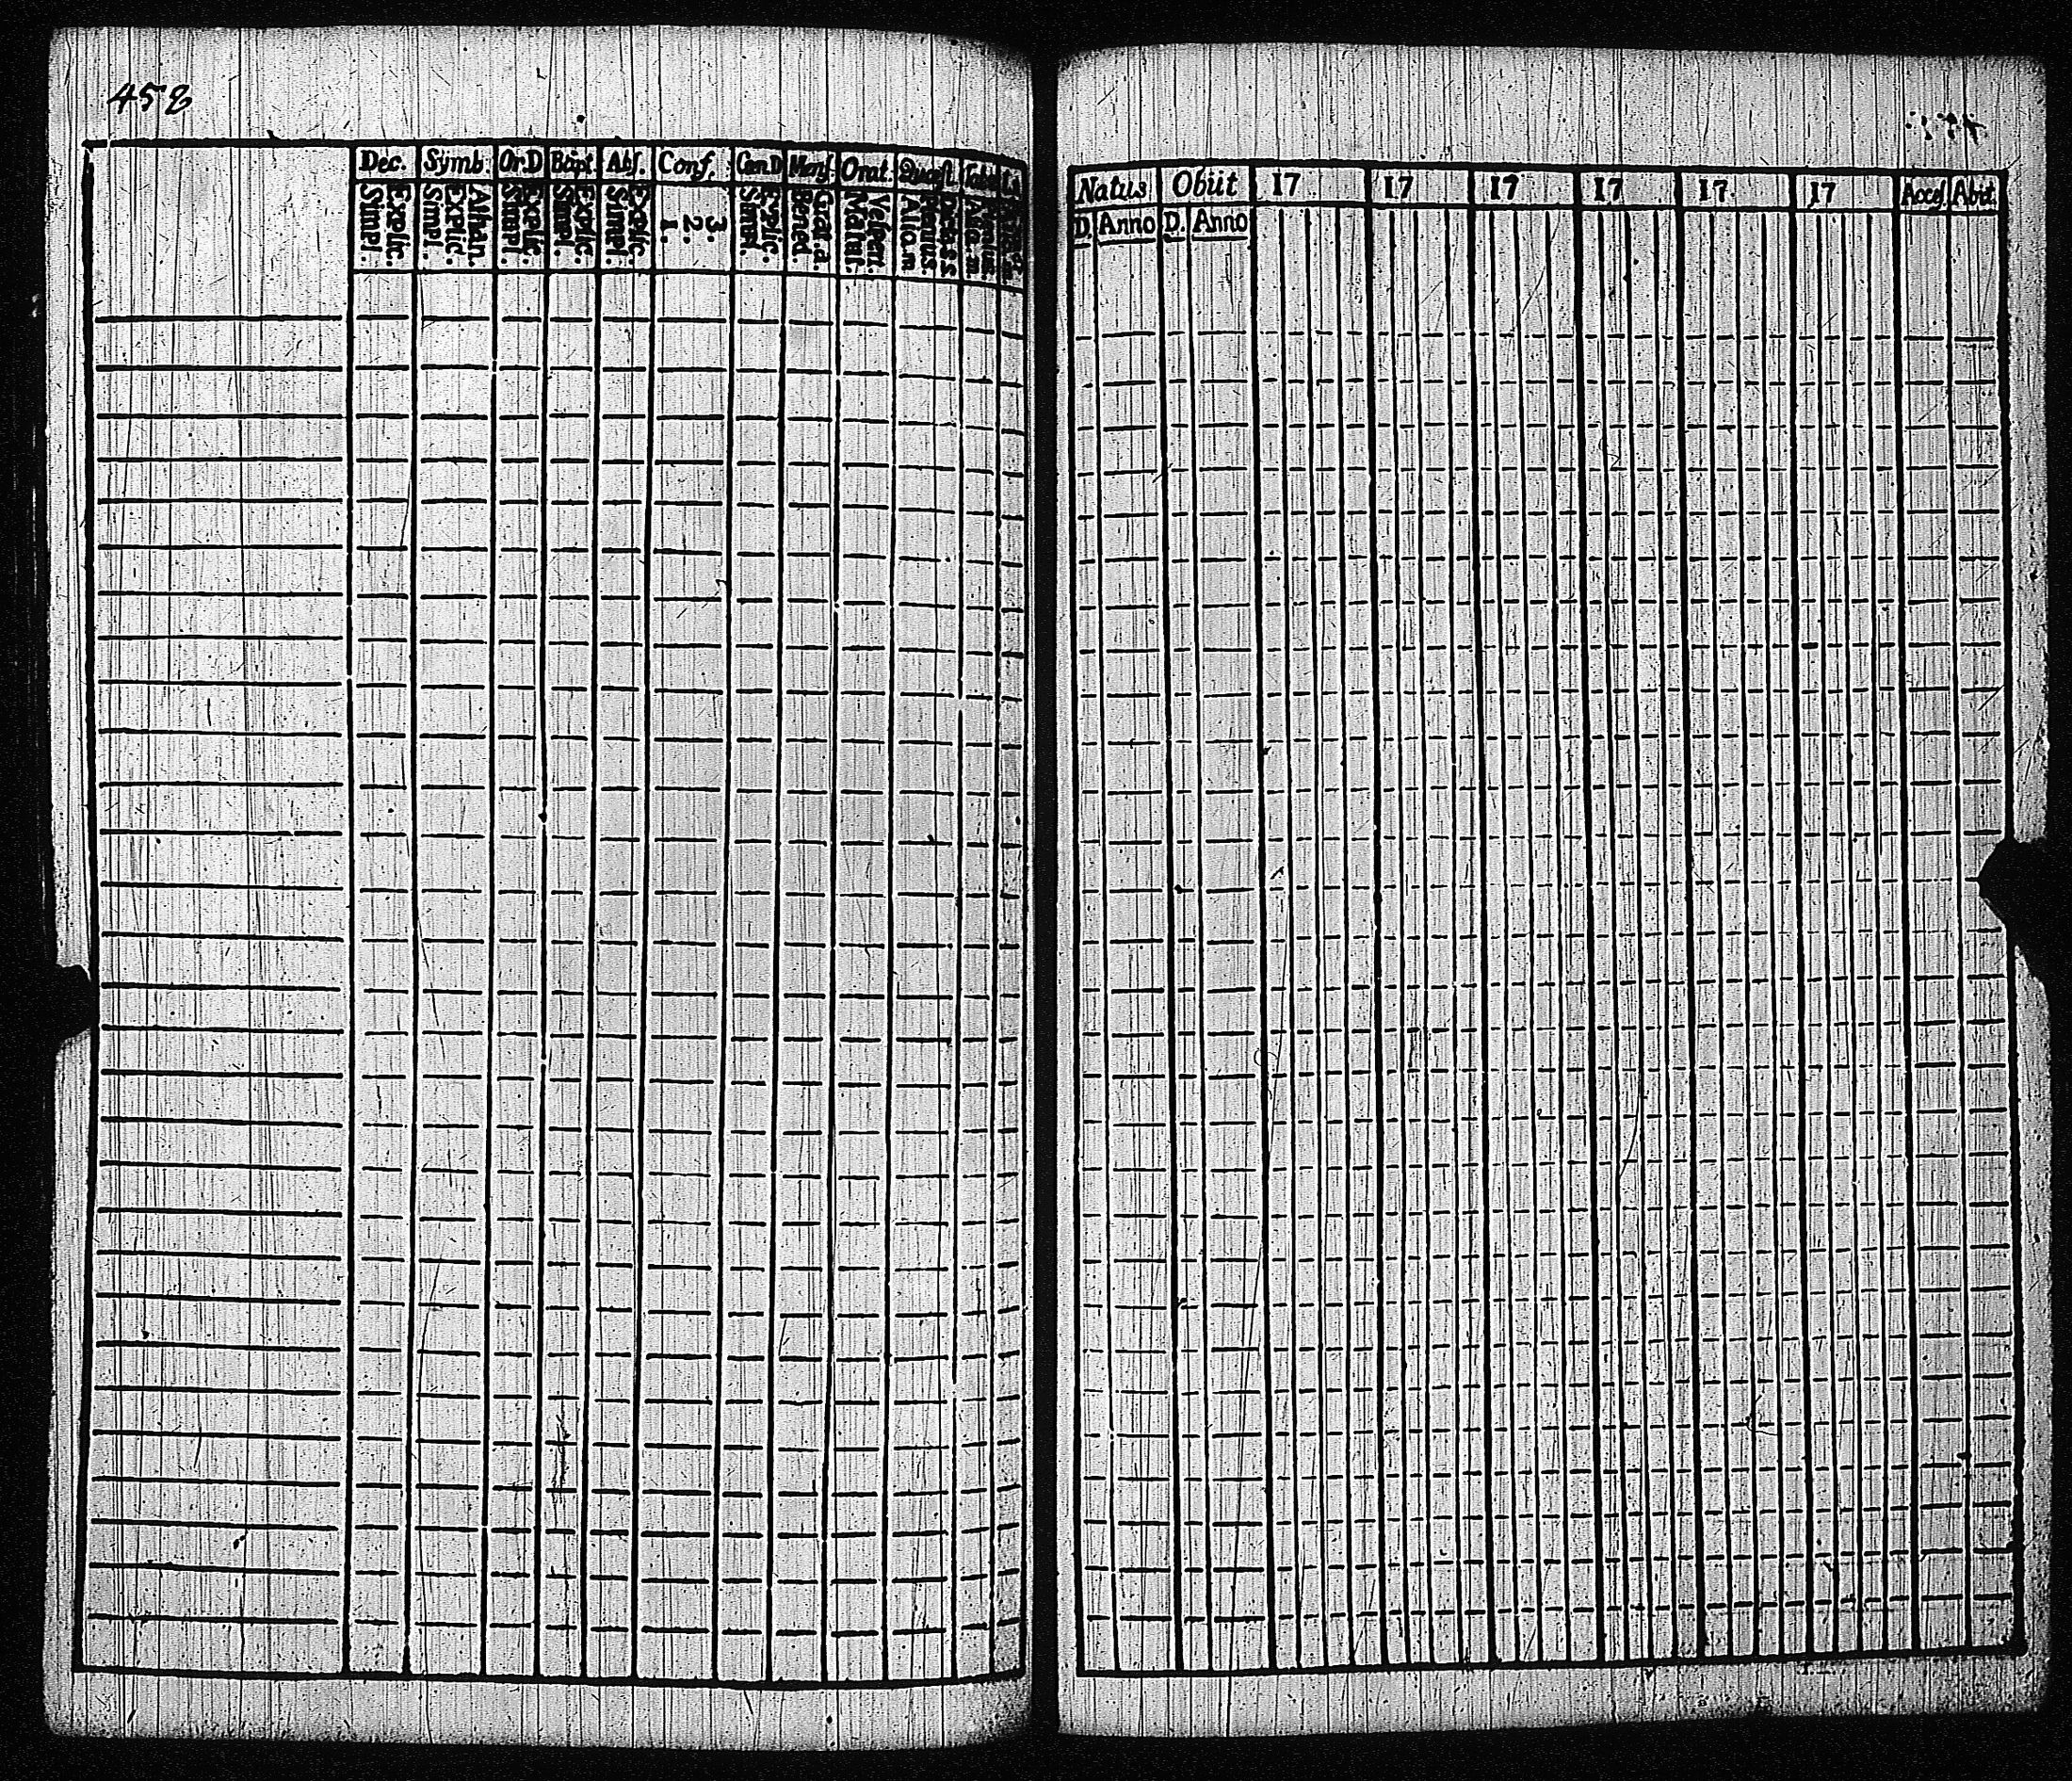 458
Dec. Symb. Or.D Bapt. Abs. Conf. Cen.D Mens. Orat. Quæst.
Explic. Simpl.
Athan. Explic. Simpl.
Explic. Simpl.
Explic. Simpl.
Explic. Simpl.
3. 2. 1.
Explic. Simpl.
Grat. a. Bened.
Vesper. Matut.
Plenius. Aliq. m
Natus Obiit 17 17 17 17 17 17 Acces. Abit.
D. Anno D. Anno